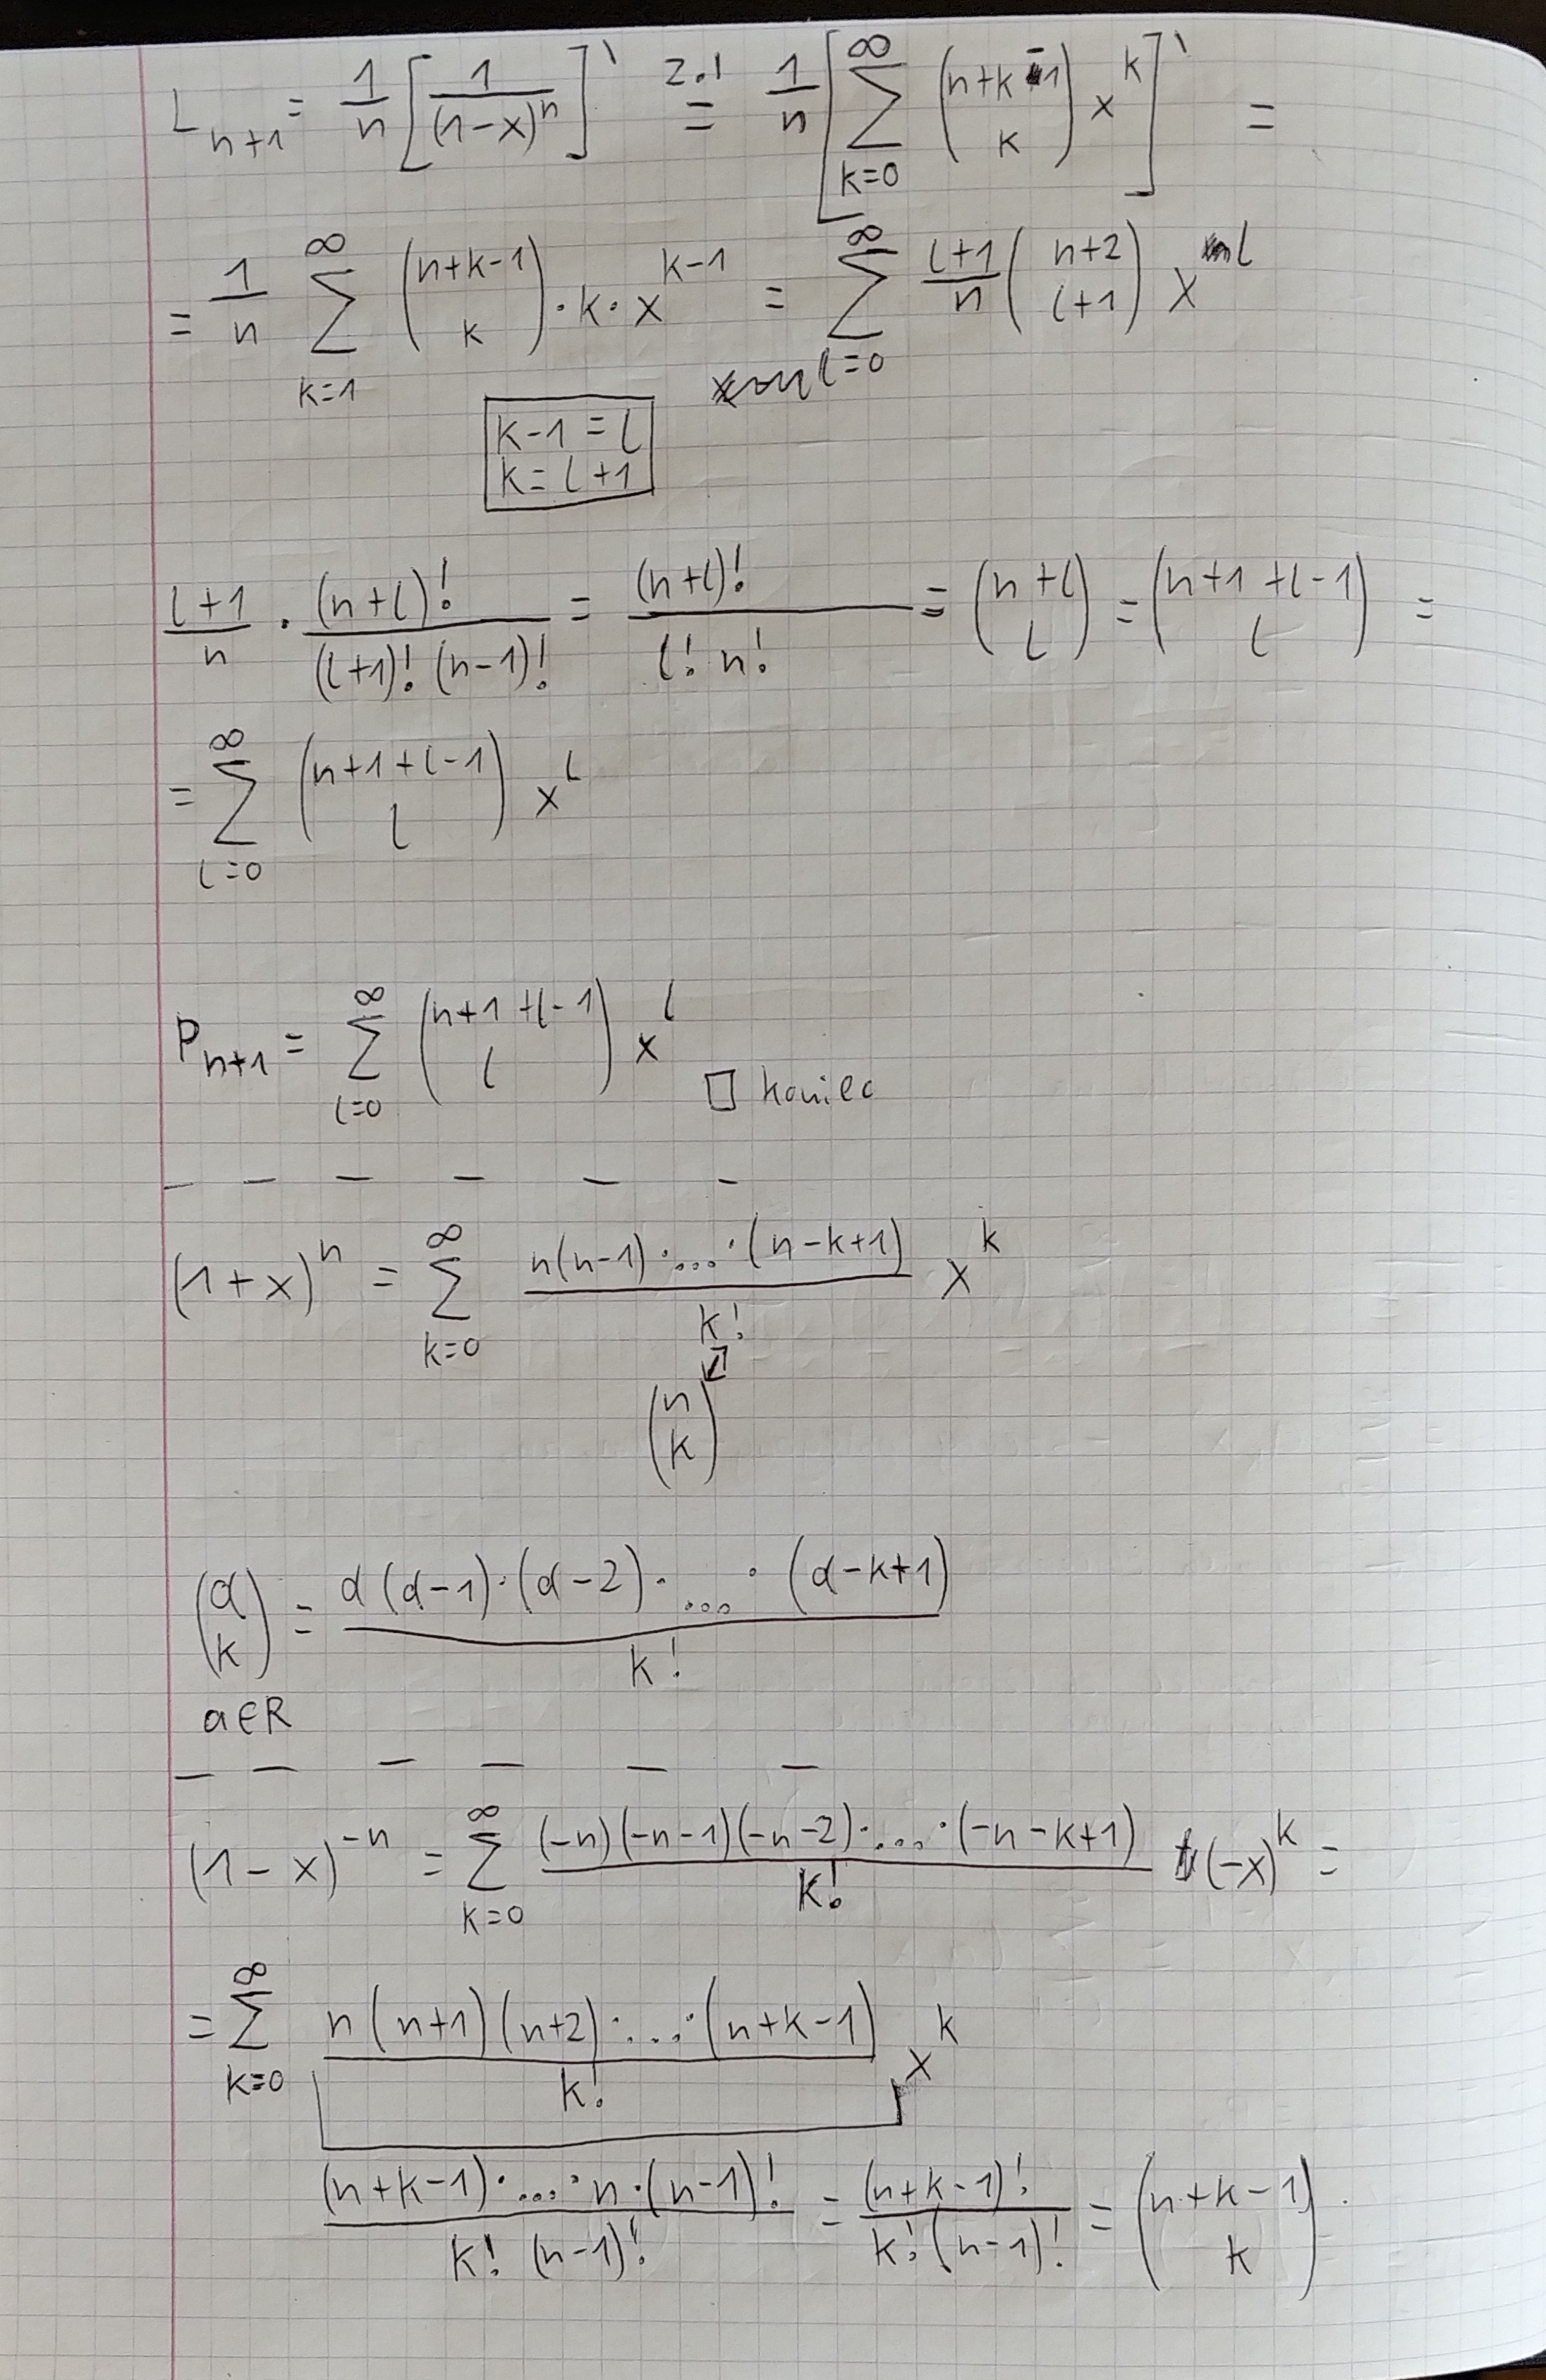 L_{n+1} = \frac{1}{n} \left[ \frac{1}{(1-x)^n} \right]' \overset{z.i}{=} \frac{1}{n} \left[ \sum_{k=0}^{\infty} \binom{n+k-1}{k} x^k \right]' =
= \frac{1}{n} \sum_{k=1}^{\infty} \binom{n+k-1}{k} \cdot k \cdot x^{k-1} = \sum_{l=0}^{\infty} \frac{l+1}{n} \binom{n+2}{l+1} x^l
k-1 = l
k = l+1
\frac{l+1}{n} \cdot \frac{(n+l)!}{(l+1)! (n-1)!} = \frac{(n+l)!}{l! n!} = \binom{n+l}{l} = \binom{n+1+l-1}{l} =
= \sum_{l=0}^{\infty} \binom{n+1+l-1}{l} x^l
P_{n+1} = \sum_{l=0}^{\infty} \binom{n+1+l-1}{l} x^l
□ koniec
– – – – – –
(1+x)^n = \sum_{k=0}^{\infty} \frac{n(n-1) \cdot \ldots \cdot (n-k+1)}{k!} x^k
↕
\binom{n}{k}
\binom{a}{k} = \frac{a(a-1) \cdot (a-2) \cdot \ldots \cdot (a-k+1)}{k!}
a ∈ R
– – – – – –
(1-x)^{-n} = \sum_{k=0}^{\infty} \frac{(-n)(-n-1)(-n-2) \cdot \ldots \cdot (-n-k+1)}{k!} (-x)^k =
= \sum_{k=0}^{\infty} \frac{n(n+1)(n+2) \cdot \ldots \cdot (n+k-1)}{k!} x^k
\frac{(n+k-1) \cdot \ldots \cdot n \cdot (n-1)!}{k! (n-1)!} = \frac{(n+k-1)!}{k! (n-1)!} = \binom{n+k-1}{k} .